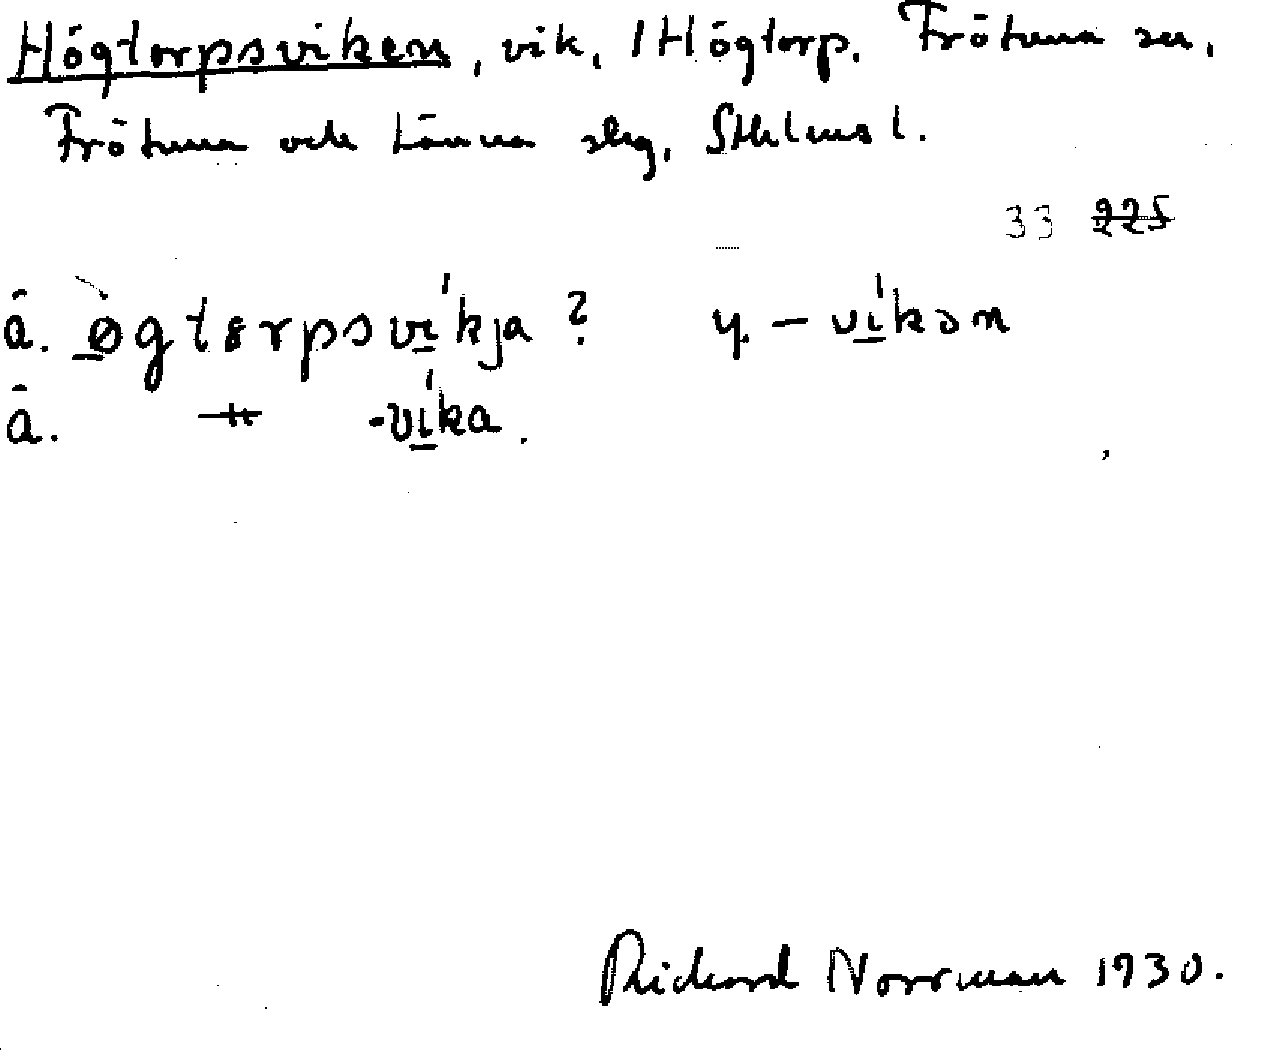 Högtorpsviken, vik, /Högtorp. Frötuna sn,
Frötuna och Länna slg, Sthlms l.
33 225
ā. øgtørpsvi̱kja? y. – vi̱kən
ā. –"– -vi̱ka.
Rickard Norrman 1930.